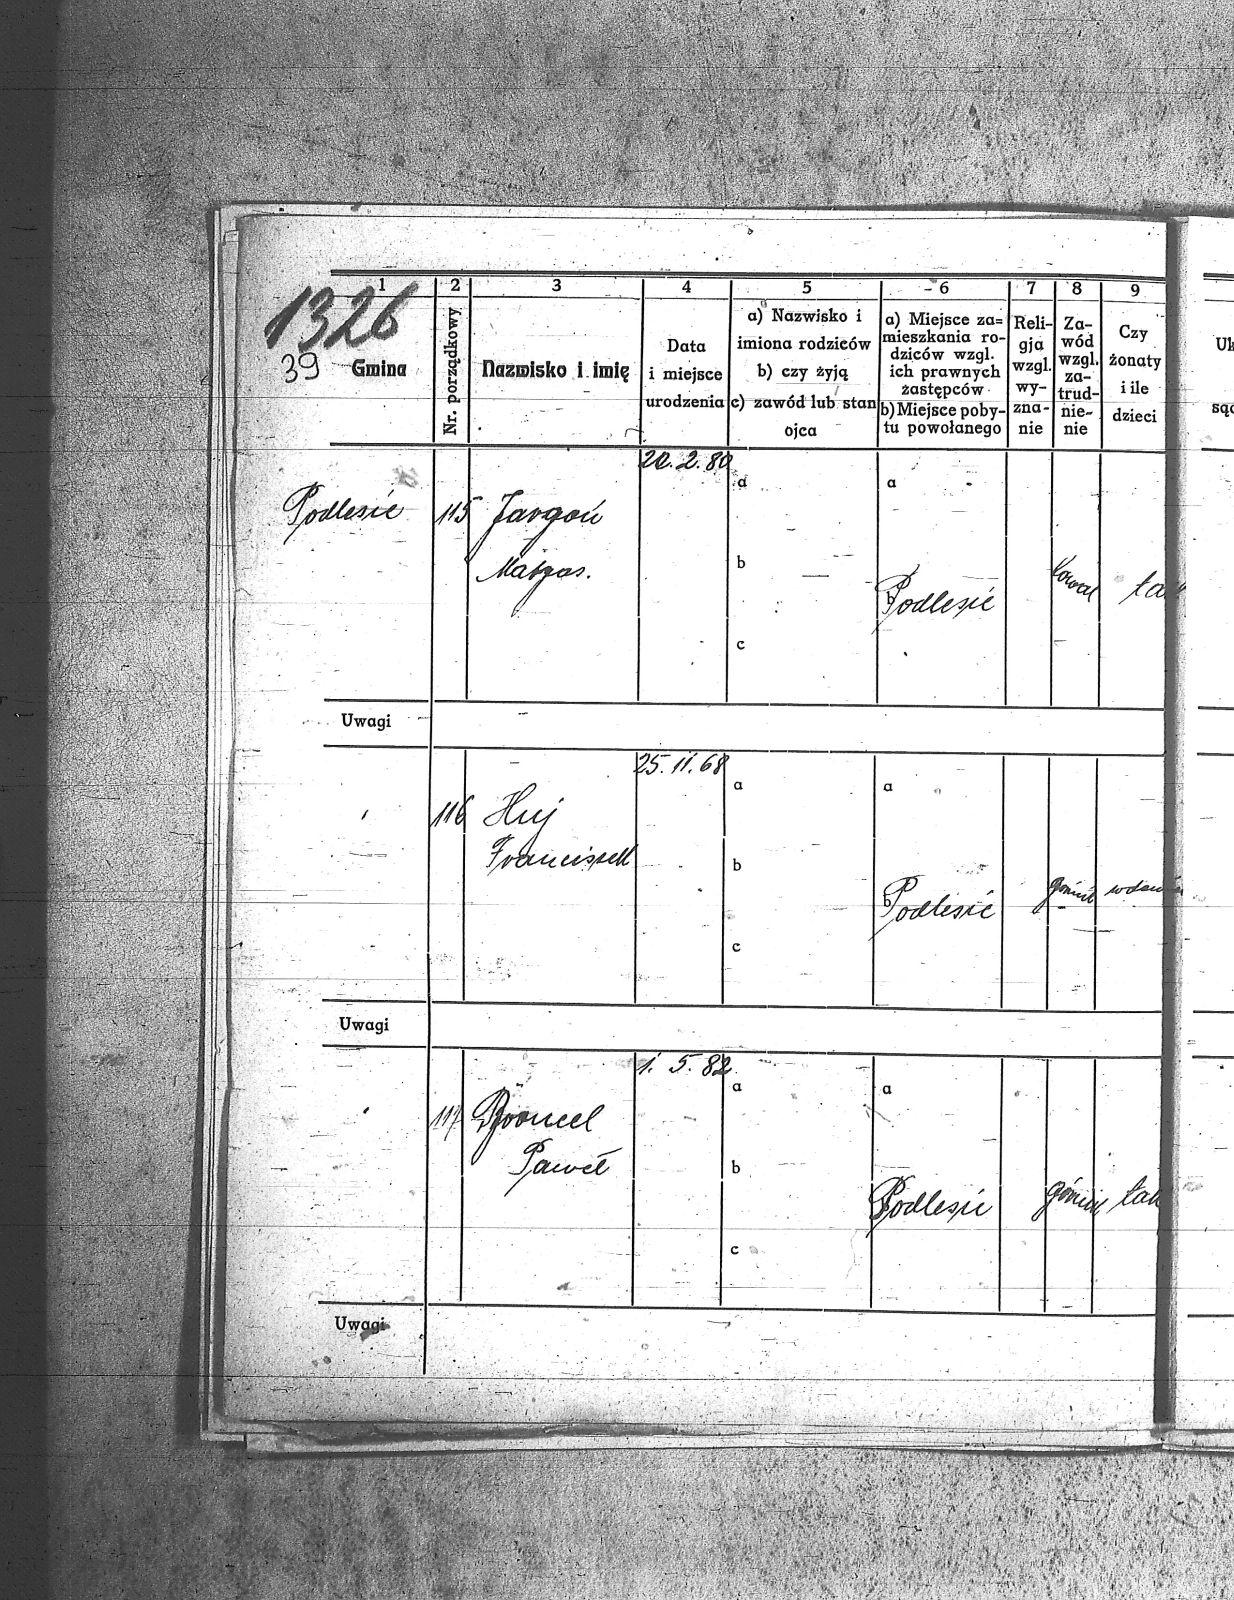 1326
39
1 2 3 4 5 6 7 8 9
Gmina
Nr. porządkowy
Nazwisko i imię
Data
i miejsce
urodzenia
a) Nazwisko i
imiona rodziców
b) czy żyją
c) zawód lub stan
ojca
a) Miejsce za=
mieszkania ro-
dziców wzgl.
ich prawnych
zastępców
b) Miejsce poby-
tu powołanego
Reli-
gja
wzgl.
wy-
zna-
nie
Za-
wód
wzgl.
za-
trud-
nie-
nie
Czy
żonaty
i ile
dzieci
20. 2. 80
a a
Podlesie 115 Jargoń
Małgos.
b
b Podlesie kowal tak
c
Uwagi
25. 11. 68
a a
116 Huj
Franciszek
b
b Podlesie górnik
c
Uwagi
1. 5. 82
a a
117
Paweł
b
Podlesie górnik tak
c
Uwagi